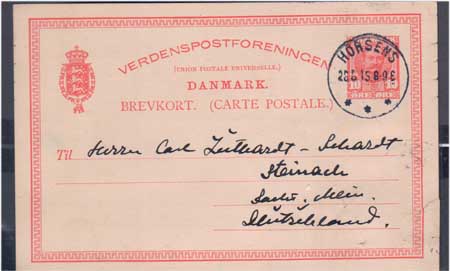 VERDENSPOSTFORENINGEN
(UNION POSTALE UNIVERSELLE.)
DANMARK.
BREVKORT. (CARTE POSTALE.)
HORSENS
10 ØRE ØRE
Til Herrn Carl Luthardt-Schardt
Steinach
Sachs. Mein.
Deutschland.